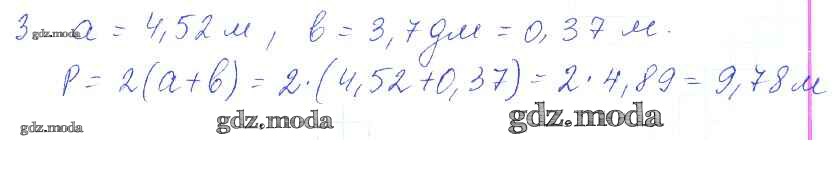 3 gdz.moda a = 4,52 м, в = 3,7 дм = 0,37 м.
P = 2(a+в) = 2·(4,52+0,37) = 2·4,89 = 9,78 м
gdz.moda gdz.moda gdz.moda